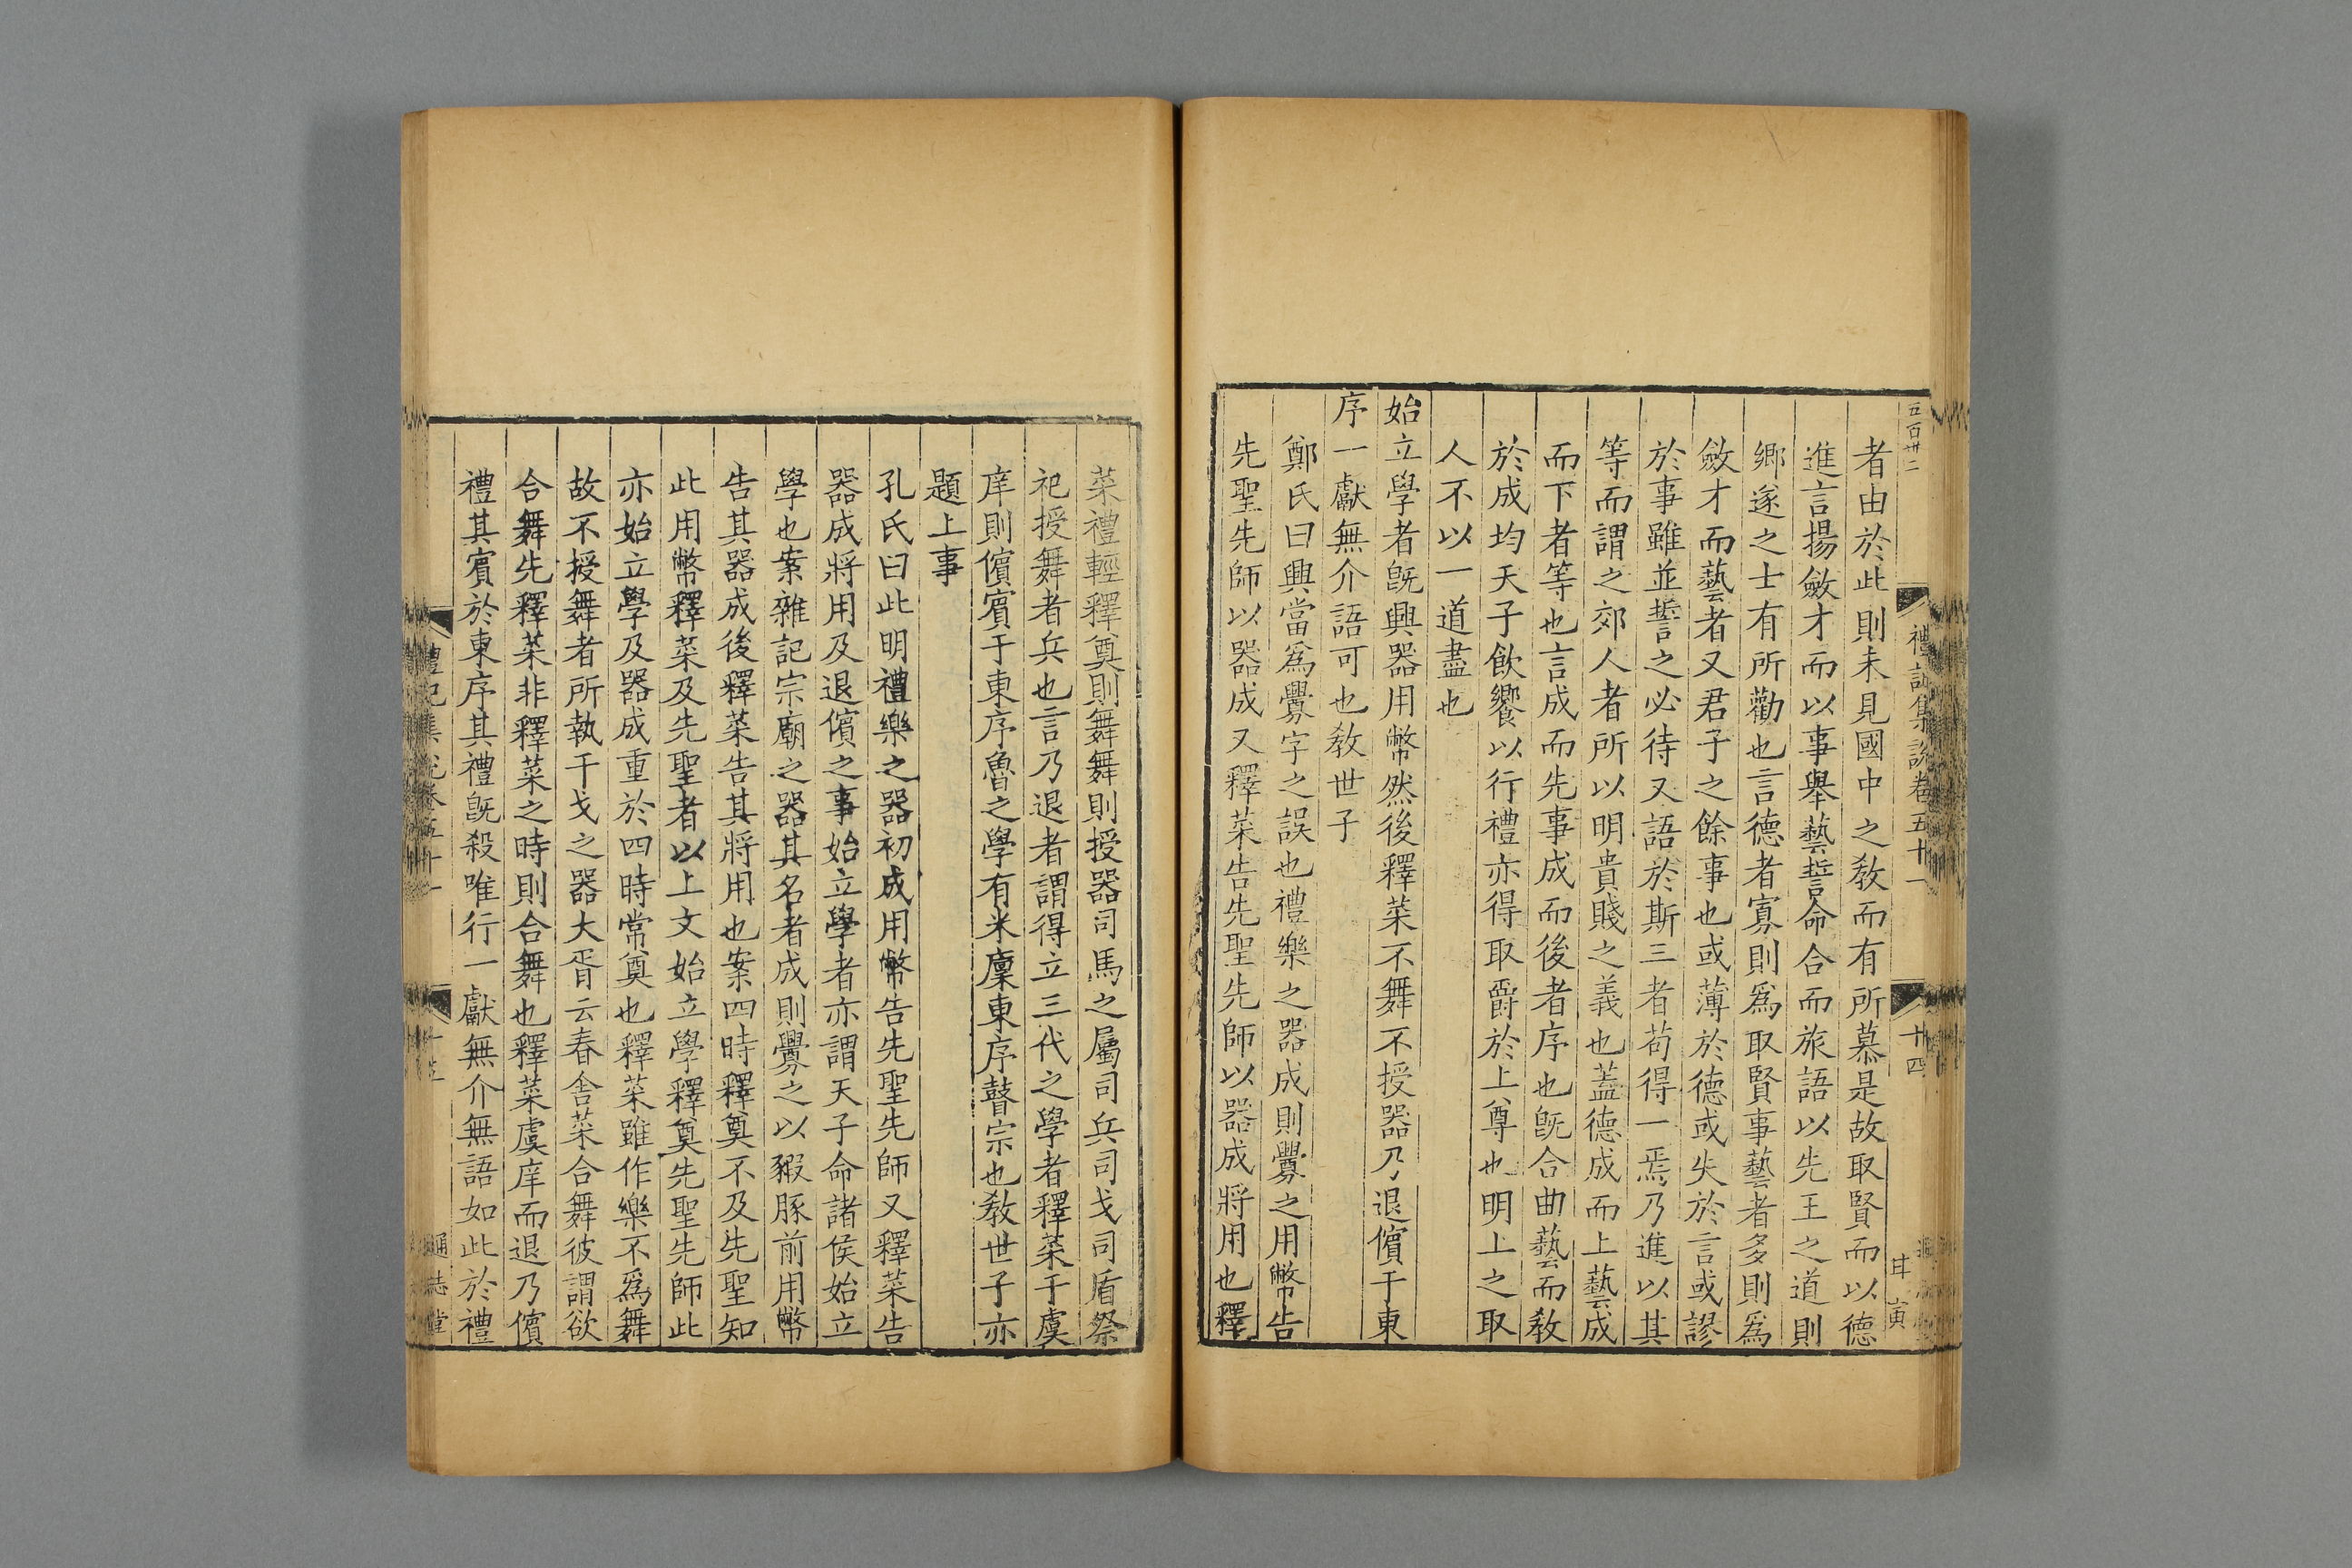 五百卅二
禮記集說卷五十一
廿四
甘寅
者由於此則未見國中之敎而有所慕是故取賢而以德
進言揚斂才而以事舉藝誓命合而旅語以先王之道則
鄉遂之士有所勸也言德者寡則爲取賢事藝者多則爲
斂才而藝者又君子之餘事也或薄於德或失於言或謬
於事雖並誓之必待又語於斯三者苟得一焉乃進以其
等而謂之郊人者所以明貴賤之義也蓋德成而上藝成
而下者等也言成而先事成而後者序也旣合曲藝而敎
於成均天子飲饗以行禮亦得取爵於上尊也明上之取
人不以一道盡也
始立學者旣興器用幣然後釋菜不舞不授器乃退儐于東
序一獻無介語可也敎世子
鄭氏曰興當爲釁字之誤也禮樂之器成則釁之用幣告
先聖先師以器成又釋菜告先聖先師以器成將用也釋
菜禮輕釋奠則舞舞則授器司馬之屬司兵司戈司盾祭
祀授舞者兵也言乃退者謂得立三代之學者釋菜于虞
庠則儐賓于東序魯之學有米廩東序瞽宗也敎世子亦
題上事
孔氏曰此明禮樂之器初成用幣告先聖先師又釋菜告
器成將用及退儐之事始立學者亦謂天子命諸侯始立
學也案雜記宗廟之器其名者成則釁之以豭豚前用幣
告其器成後釋菜告其將用也案四時釋奠不及先聖知
此用幣釋菜及先聖者以上文始立學釋奠先聖先師此
亦始立學及器成重於四時常奠也釋菜雖作樂不爲舞
故不授舞者所執干戈之器大胥云春舍菜合舞彼謂欲
合舞先釋菜非釋菜之時則合舞也釋菜虞庠而退乃儐
禮其賓於東序其禮旣殺唯行一獻無介無語如此於禮
禮記集說卷五十一
通志堂